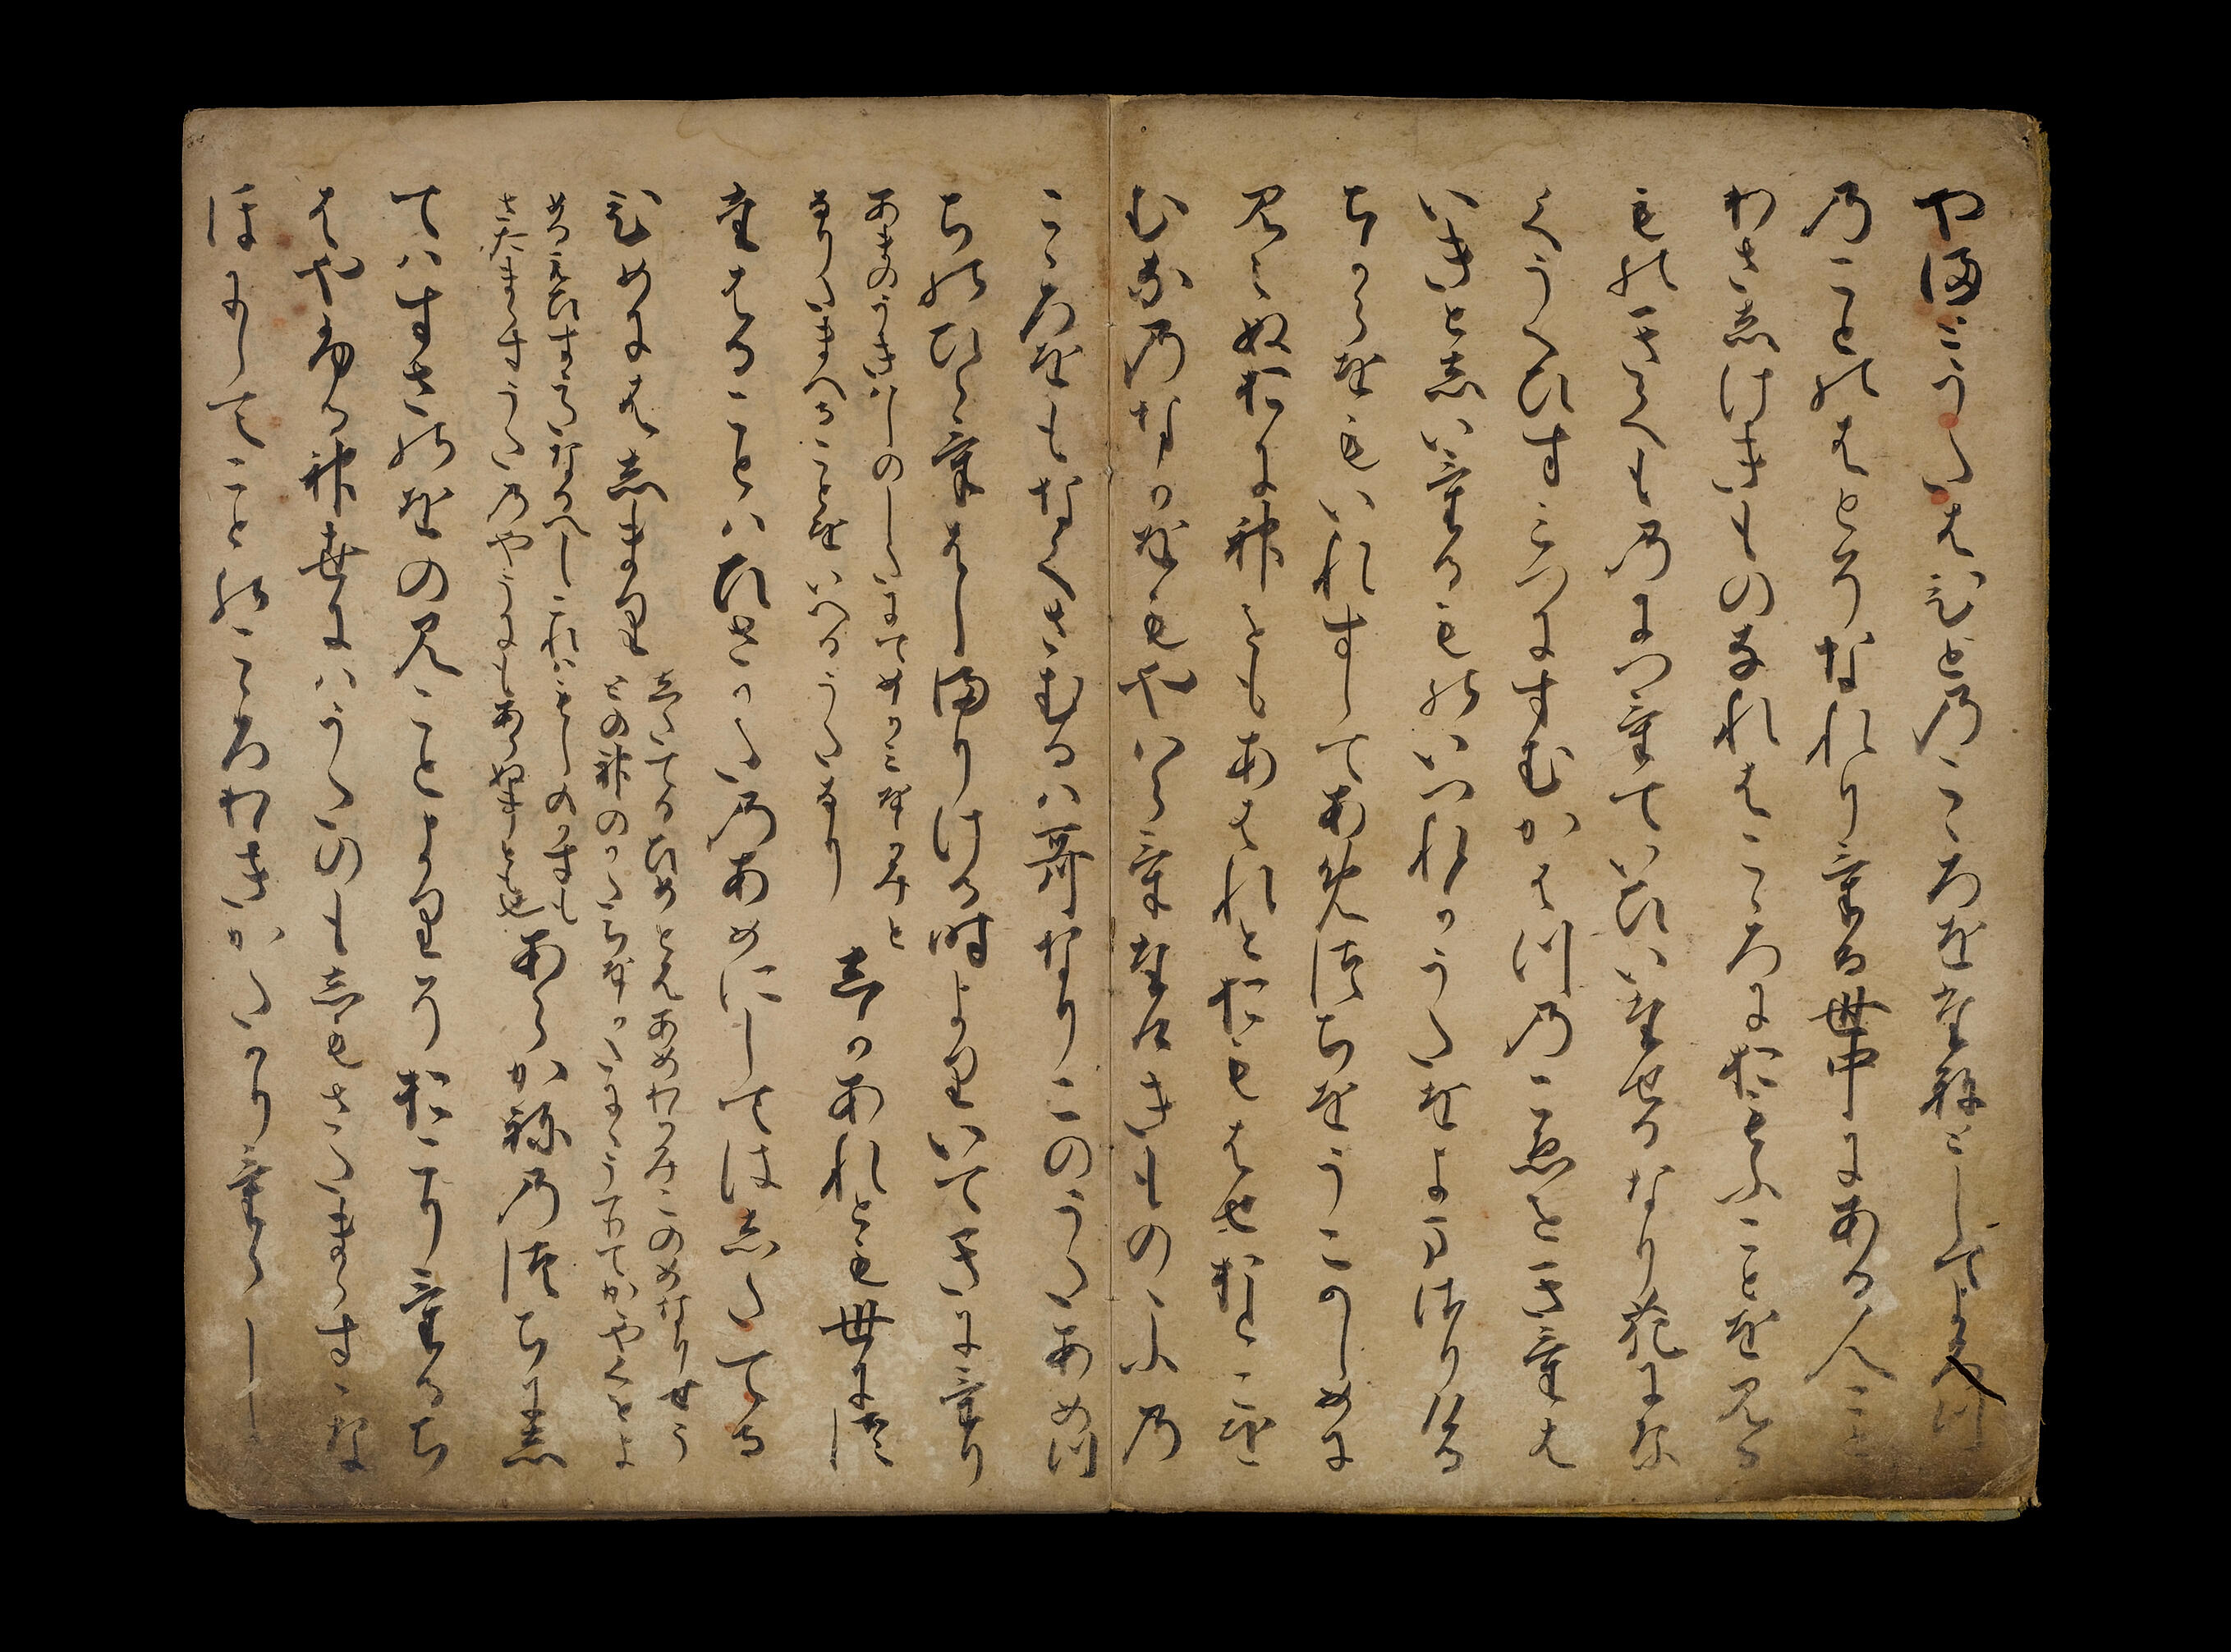 やまとうたはひとのこころをたねとしてよろつ
のことのはとそなれりける世中にある人こと
わさしけきものなれはこころにおもふことを見る
ものきくものにつけていひいたせるなり花にな
くうくひすみつにすむかはつのこゑをきけは
いきとしいけるものいつれかうたをよまさりける
ちからをもいれすしてあめつちをうこかしめに
見えぬおに神をもあはれとおもはせをとこを
むなのなかをもやはらけたけきもののふの
こころをもなくさむるは哥なりこのうたあめつ
ちのひらけはしまりける時よりいてきにけり
あまのうきはしのしたにてめかみをかみと
なりたまへることをいへるうたなり
しかあれとも世につ
たはることはひさかたのあめにしてはしたてる
ひめにはしまり
したてるひめとはあめわかみこのめなりせう
との神のかたちをかたにうつりてかかやくをよ
めるえひすうたなるへしこれらはもしのかすも
さたまらすうたのやうにもあらぬことともなり
あらかねのつちにし
てはすさのをのみことよりそおこりけるち
はやふる神世にはうたのもしもさたまらすすな
ほにしてことのこころわきかたかりけらし